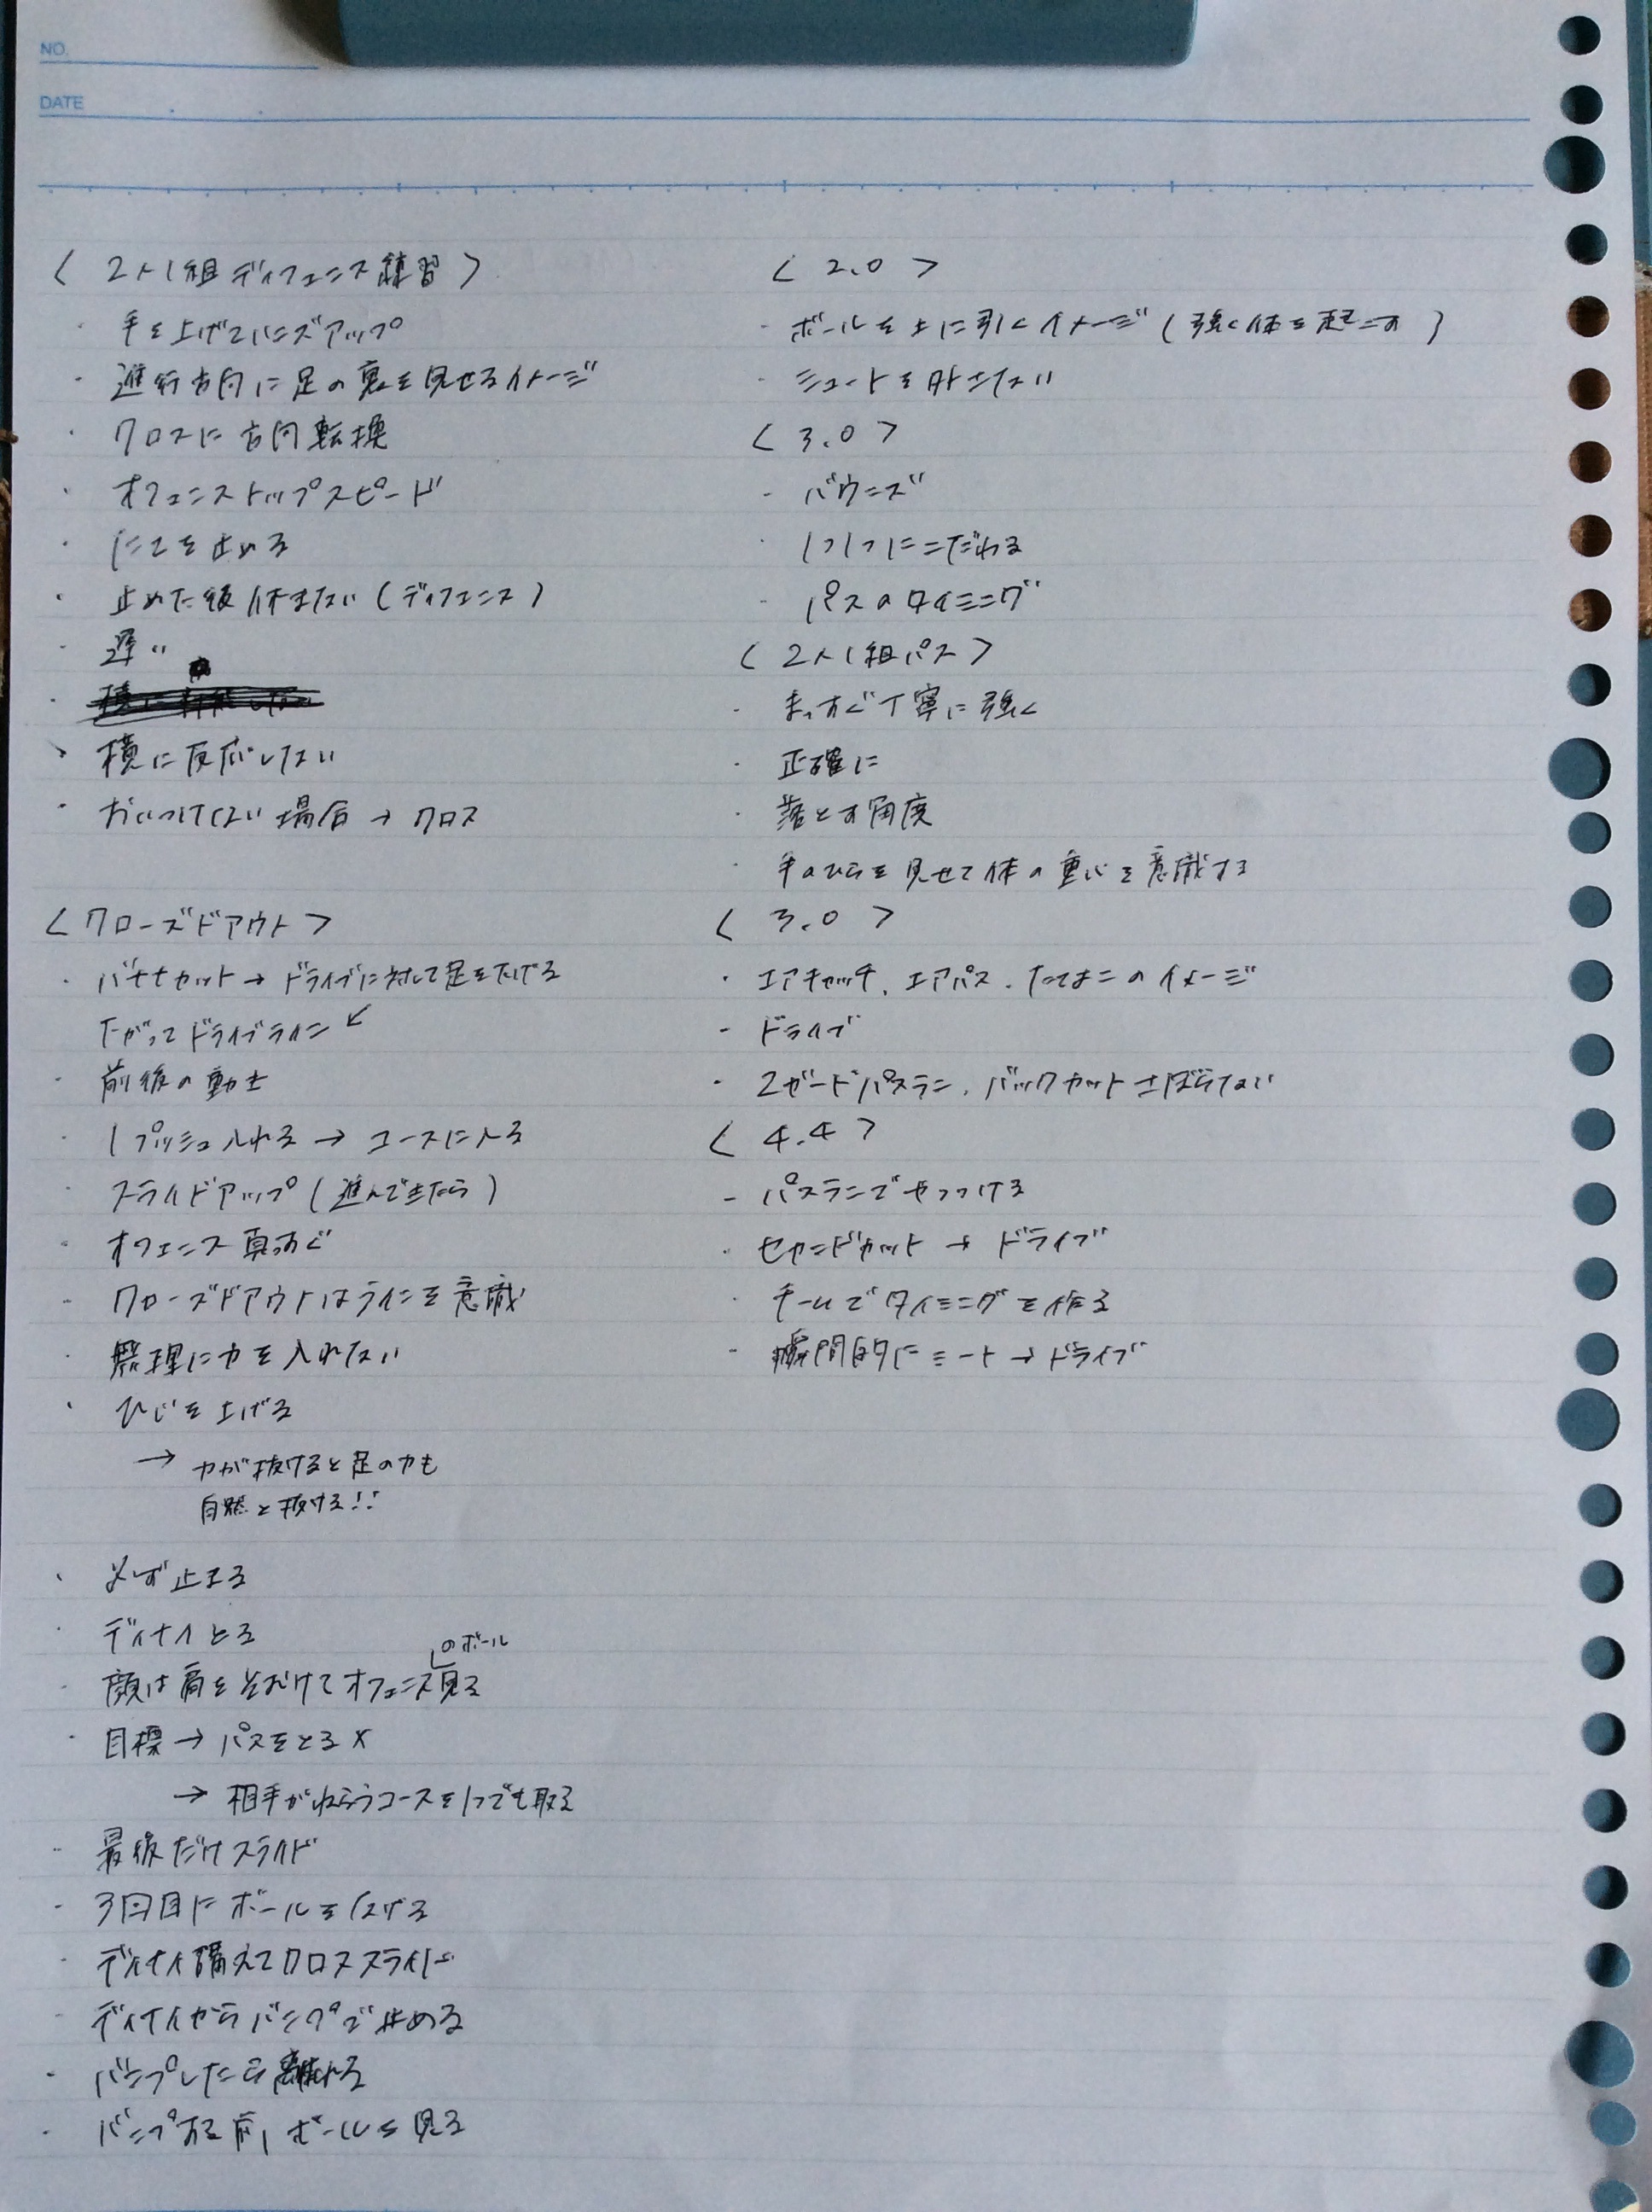 NO.
DATE
〈 2人1組ディフェンス練習 〉
・ 手を上げてハンズアップ
・ 進行方向に足の裏を見せるイメージ
・ クロスに方向転換
・ オフェンストップスピード
・ を止める
・ 止めた後休まない(ディフェンス)
・ 遅い
・ 横に反応しない
・ おいつけない場合 → クロス
〈 クローズドアウト 〉
・ バナナカット → ドライブに対して足を下げる
下がってドライブライン ↙
・ 前後の動き
・ 1プッシュ入れる → コースに入る
・ スライドアップ(進んできたら)
・ オフェンス真っすぐ
・ クローズドアウトはラインを意識
・ 無理に力を入れない
・ ひじを上げる
→ 力が抜けると足の力も
自然と抜ける!!
・ 必ず止まる
・ ディナイとる
のボール
・ 顔は肩をそむけてオフェンス見る
・ 目標 → パスをとる ×
→ 相手がねらうコースを1つでも取る
・ 最後だけスライド
・ 3回目にボールを投げる
・ ディナイ備えてクロススライド
・ ディナイからバンプで止める
・ バンプしたら離れる
・ バンプする前、ボールを見る
〈 2.0 〉
・ ボールを上に引くイメージ(強く体を起こす)
・ シュートを外さない
〈 3.0 〉
・ バウンズ
・ 1つ1つにこだわる
・ パスのタイミング
〈 2人1組パス 〉
・ まっすぐ丁寧に強く
・ 正確に
・ 落とす角度
・ 手のひらを見せて体の重心を意識する
〈 3.0 〉
・ エアキャッチ、エアパス、たてよこのイメージ
・ ドライブ
・ 2ガードパスラン、バックカットさぼらない
〈 4.4 〉
・ パスランでやっつける
・ セカンドカット → ドライブ
・ チームでタイミングを作る
・ 瞬間的にミート → ドライブ